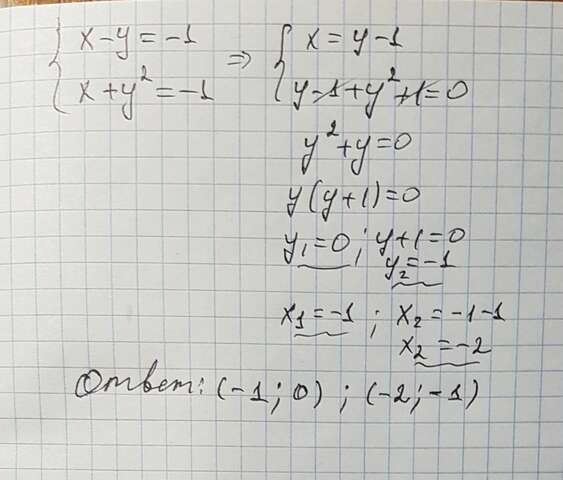 x-y=-1 => x=y-1
x+y²=-1 y-1+y²+1=0
y²+y=0
y(y+1)=0
y₁=0; y+1=0
y₂=-1
x₁=-1; x₂=-1-1
x₂=-2
Ответ: (-1;0); (-2;-1)